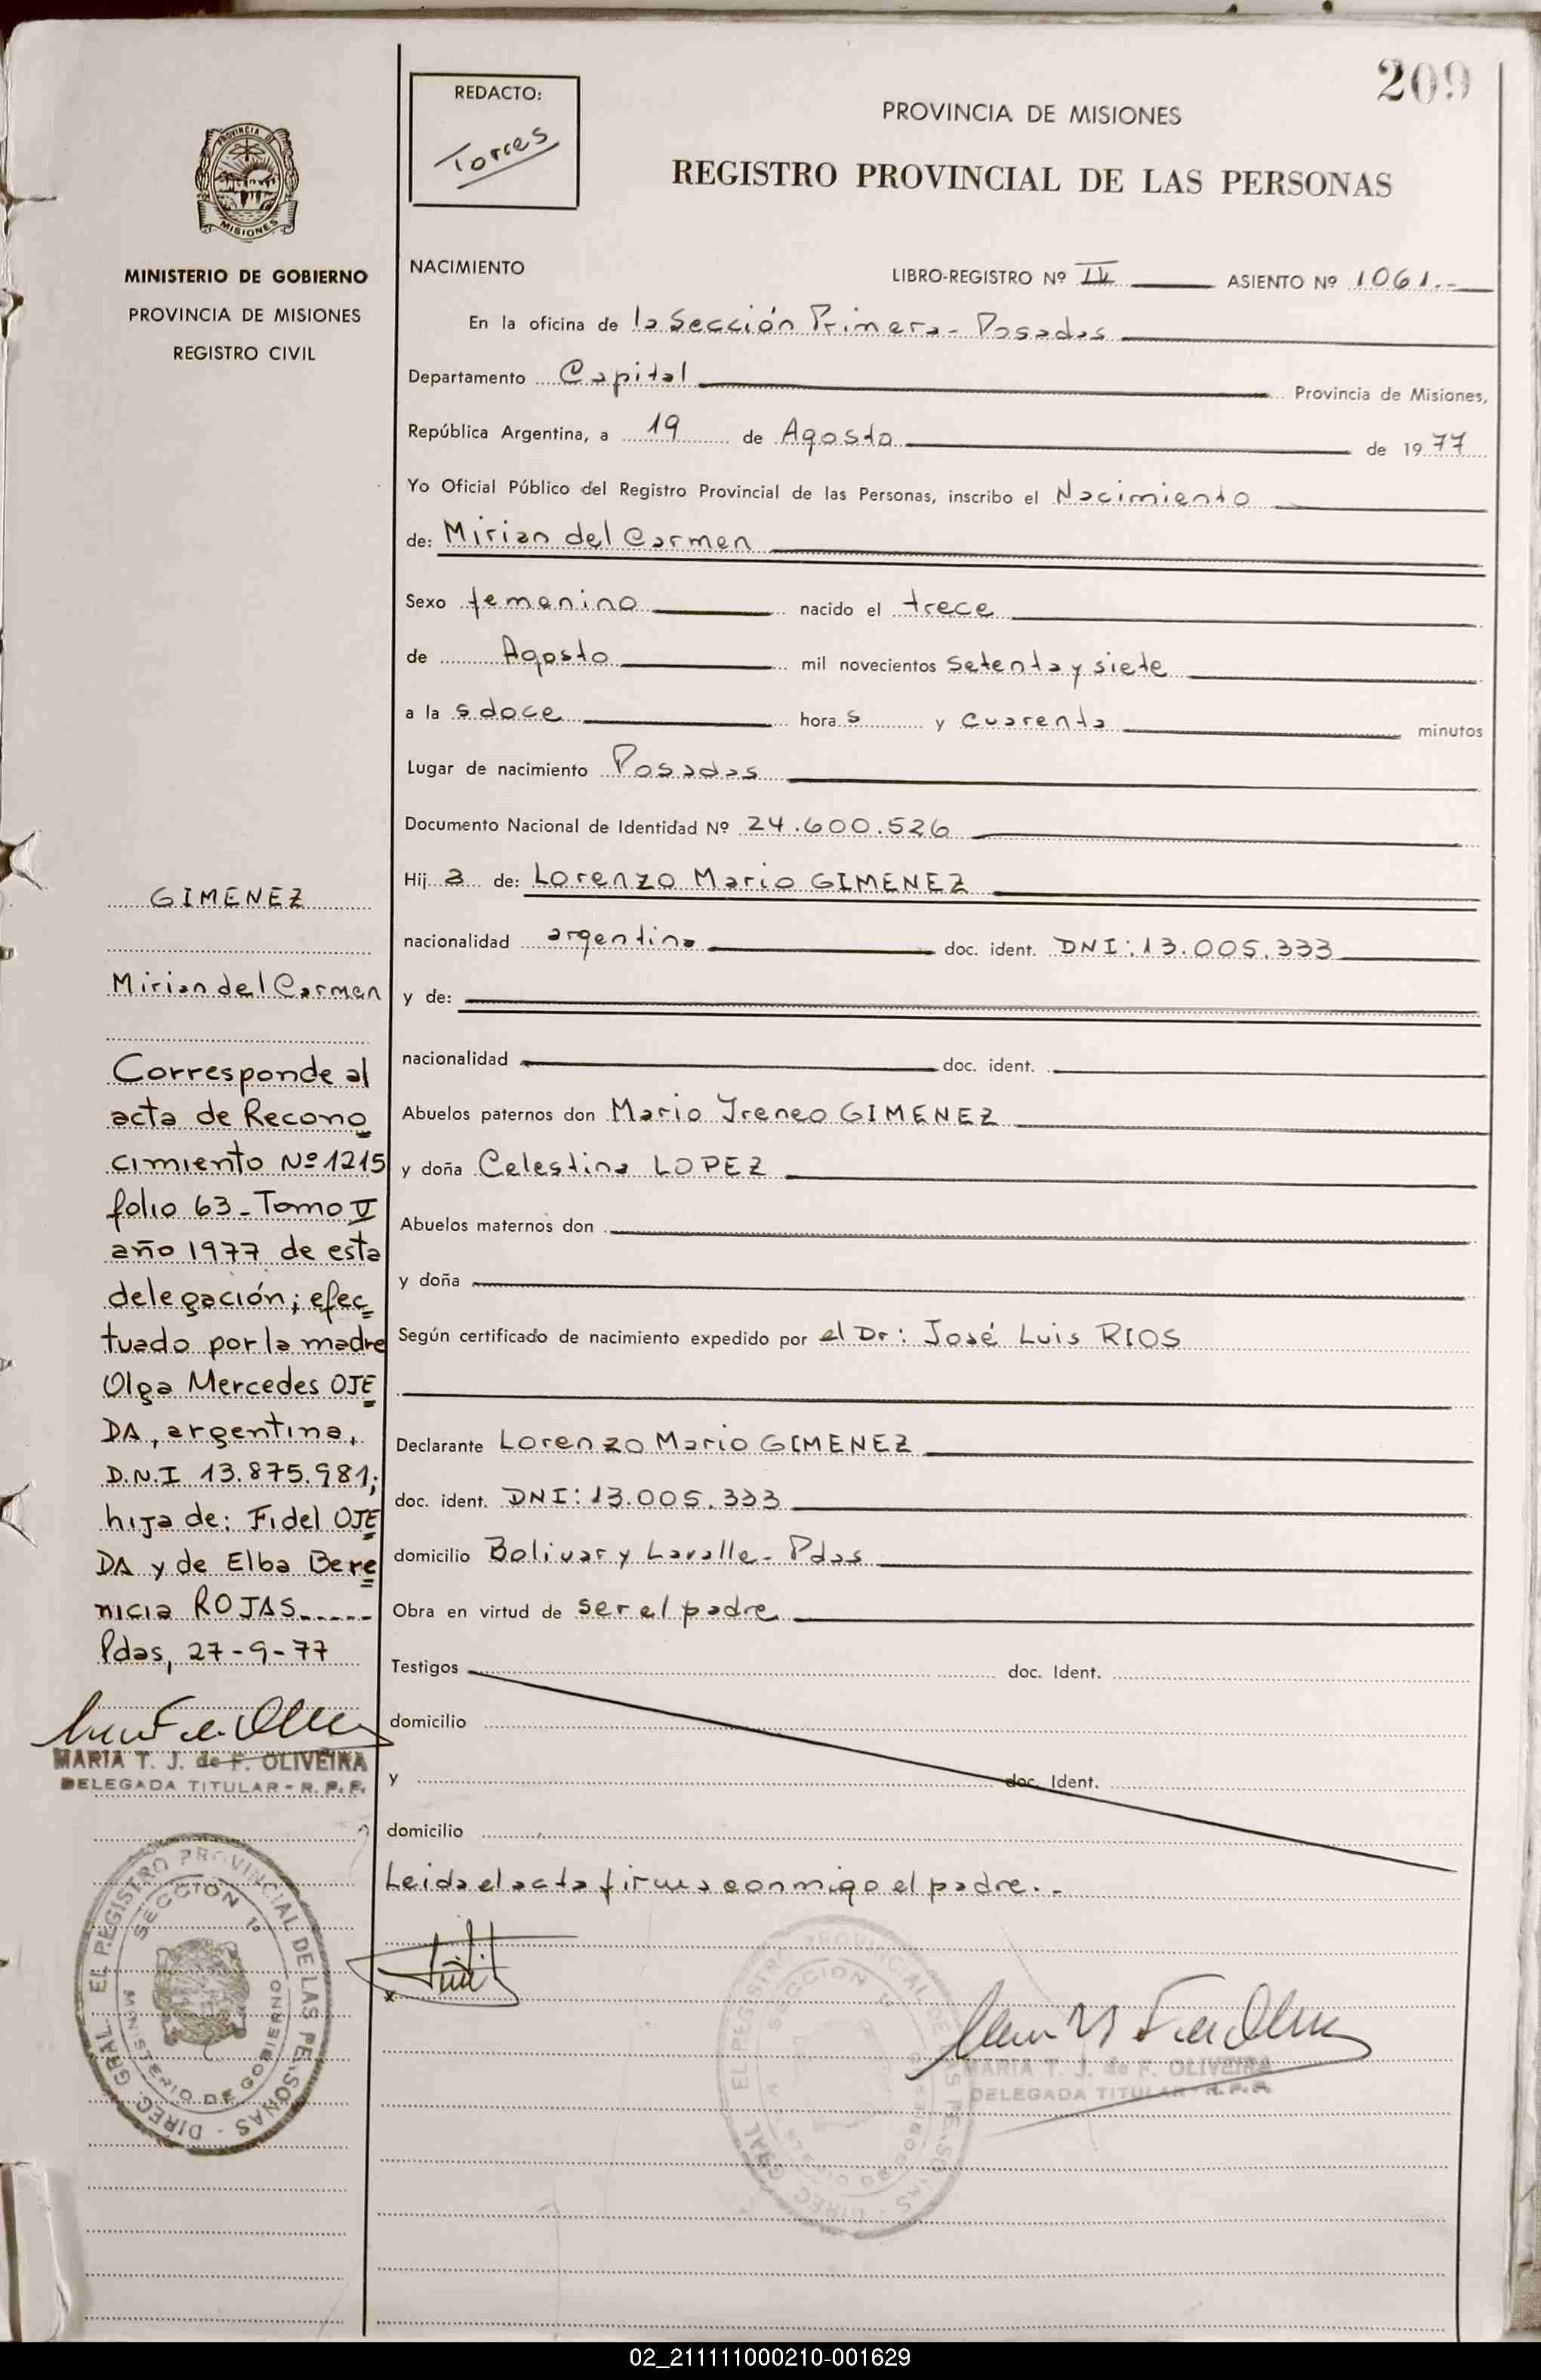 209
REDACTO:
Torres
PROVINCIA DE MISIONES
REGISTRO PROVINCIAL DE LAS PERSONAS
PROVINCIA DE
MISIONES
MINISTERIO DE GOBIERNO
PROVINCIA DE MISIONES
REGISTRO CIVIL
NACIMIENTO LIBRO-REGISTRO Nº IV ASIENTO Nº 1061.-
En la oficina de la Sección Primera - Posadas
Departamento Capital Provincia de Misiones,
República Argentina, a 19 de Agosto de 1977
Yo Oficial Público del Registro Provincial de las Personas, inscribo el Nacimiento
de: Mirian del Carmen
Sexo femenino nacido el trece
de Agosto mil novecientos setenta y siete
a la s doce hora s y cuarenta minutos
Lugar de nacimiento Posadas
Documento Nacional de Identidad Nº 24.600.526
Hij a de: Lorenzo Mario GIMENEZ
nacionalidad argentina doc. ident. DNI: 13.005.333
y de:
nacionalidad doc. ident.
Abuelos paternos don Mario Ireneo GIMENEZ
y doña Celestina LOPEZ
Abuelos maternos don
y doña
Según certificado de nacimiento expedido por el Dr: José Luis RIOS
Declarante Lorenzo Mario GIMENEZ
doc. ident. DNI: 13.005.333
domicilio Bolivar y Lavalle - Pdas
Obra en virtud de ser el padre
Testigos doc. Ident.
domicilio
y doc. Ident.
domicilio
Leida el acta firma conmigo el padre.-
GIMENEZ
Mirian del Carmen
Corresponde al
acta de Recono
cimiento Nº 1215
folio 63 - Tomo V
año 1977 de esta
delegación; efec
tuado por la madre
Olga Mercedes OJE
DA, argentina,
D.N.I 13.875.981;
hija de: Fidel OJE
DA y de Elba Bere
nicia ROJAS-----
Pdas, 27-9-77
MARIA T. J. de F. OLIVEIRA
DELEGADA TITULAR - R. P. P.
DIREC. GRAL. EL REGISTRO PROVINCIAL DE LAS PERSONAS
SECCION 1º
MINISTERIO DE GOBIERNO
x
DIREC. GRAL. EL REGISTRO PROVINCIAL DE LAS PERSONAS
SECCION 1º
MARIA T. J. de F. OLIVEIRA
DELEGADA TITULAR - R. P. P.
02_211111000210-001629